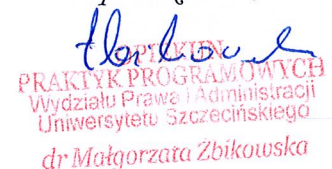 OPIEKUN
PRAKTYK PROGRAMOWYCH
Wydziału Prawa i Administracji
Uniwersytetu Szczecińskiego
dr Małgorzata Żbikowska